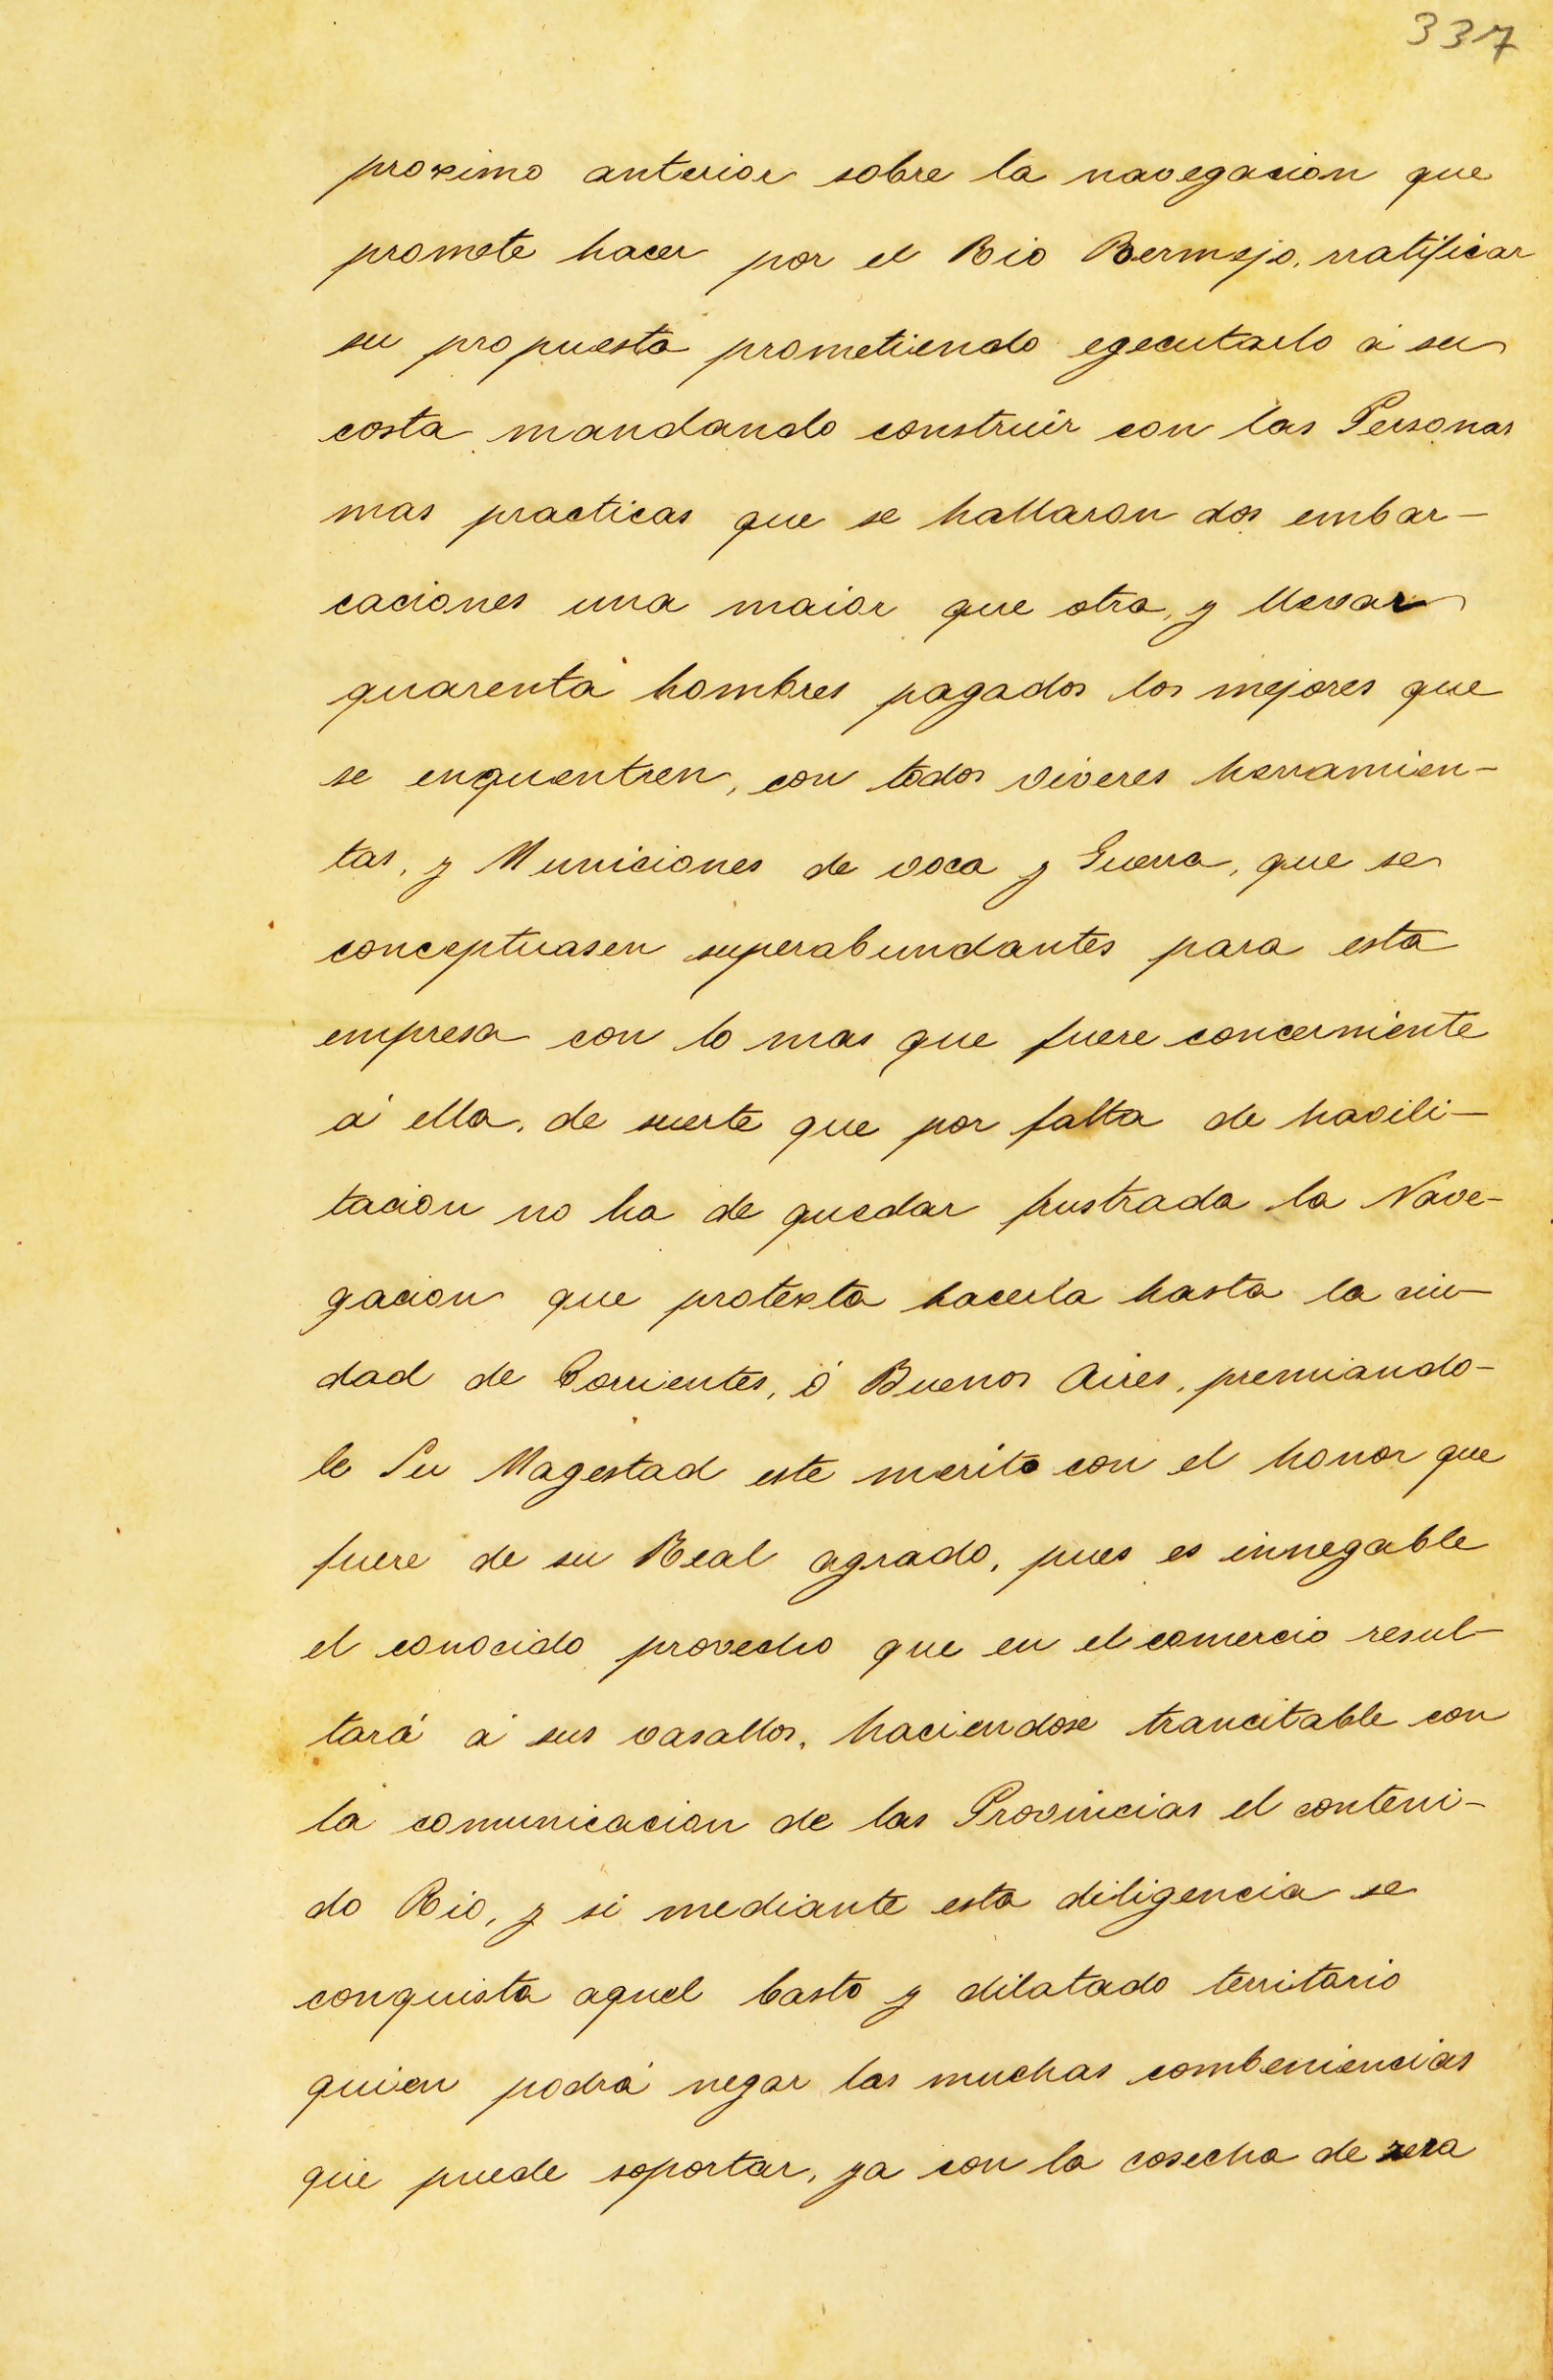 337
proximo anterior sobre la navegacion que
promete hacer por el Rio Bermejo, rratificar
su propuesta prometiendo egecutarlo á su
costa mandando construir con las Personas
mas practicas que se hallaron dos embar-
caciones una maior que otra, y llevar
quarenta hombres pagados los mejores que
se enquentren, con todos viveres herramien-
tas, y Municiones de voca y Guerra, que se
conceptuasen superabundantes para esta
empresa con lo mas que fuere concerniente
á ella, de suerte que por falta de havili-
tacion no ha de quedar frustrada la Nave-
gacion que protexta hacerla hasta la ciu-
dad de Corrientes, ó Buenos Aires, premiando-
le Su Magestad este merito con el honor que
fuere de su Real agrado, pues es innegable
el conocido provecho que en el comercio resul-
tará á sus vasallos, haciendose trancitable con
la comunicacion de las Provincias el conteni-
do Rio, y si mediante esta diligencia se
conquista aquel basto y dilatado territorio
quien podrá negar las muchas combeniencias
que puede soportar, ya con la cosecha de zera